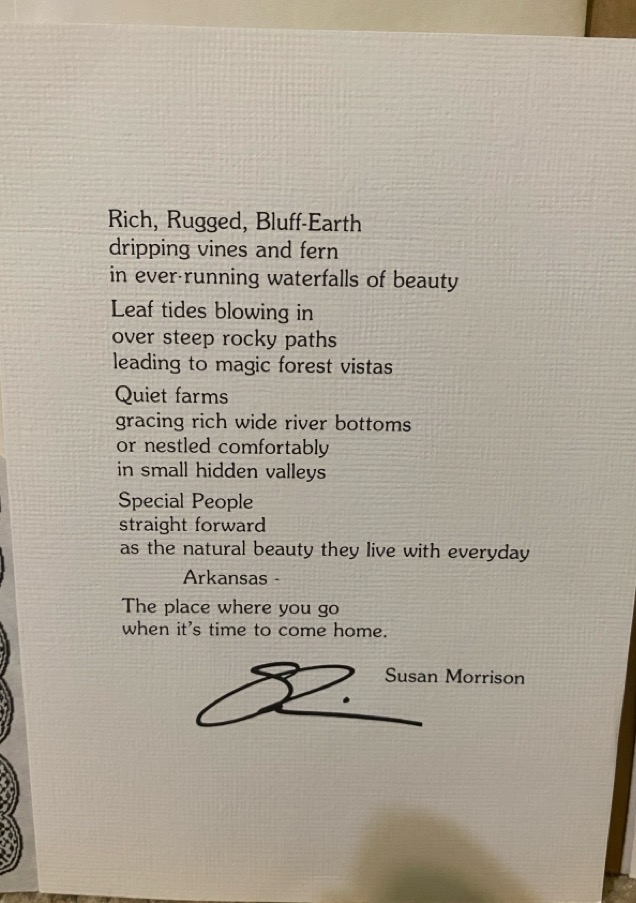 Rich, Rugged, Bluff-Earth
dripping vines and fern
in ever-running waterfalls of beauty
Leaf tides blowing in
over steep rocky paths
leading to magic forest vistas
Quiet farms
gracing rich wide river bottoms
or nestled comfortably
in small hidden valleys
Special People
straight forward
as the natural beauty they live with everyday
Arkansas -
The place where you go
when it's time to come home.
Susan Morrison